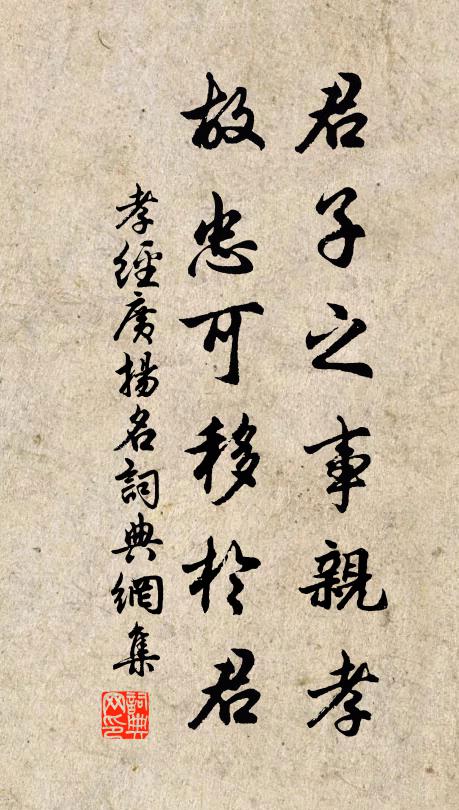 君子之事親孝
故忠可移於君
孝經廣揚名詞典網集
詞典网印